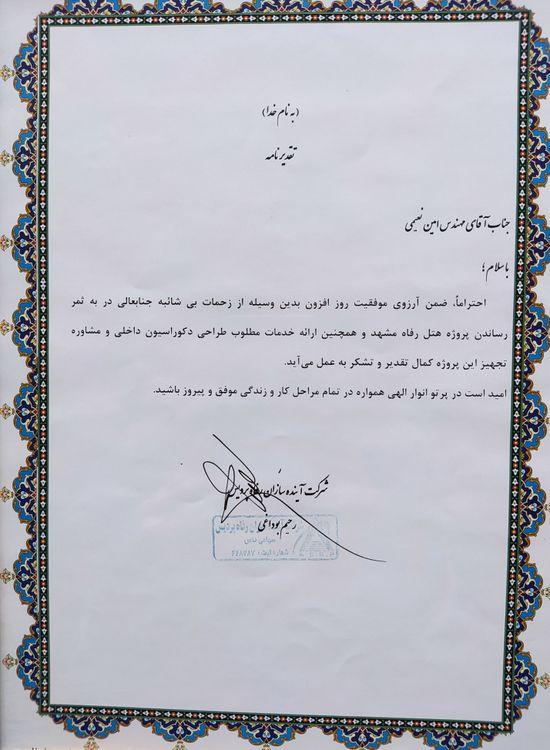 (به نام خدا)
تقدیرنامه
جناب آقای مهندس امین نعیمی
با سلام ؛
احتراماً، ضمن آرزوی موفقیت روز افزون بدین وسیله از زحمات بی شائبه جنابعالی در به ثمر
رساندن پروژه هتل رفاه مشهد و همچنین ارائه خدمات مطلوب طراحی دکوراسیون داخلی و مشاوره
تجهیز این پروژه کمال تقدیر و تشکر به عمل می‌آید.
امید است در پرتو انوار الهی همواره در تمام مراحل کار و زندگی موفق و پیروز باشید.
شرکت آینده سازان رفاه پردیس
رحیم بوداغی
ان رفاه پردیس
سهامی خاص
شماره ثبت: